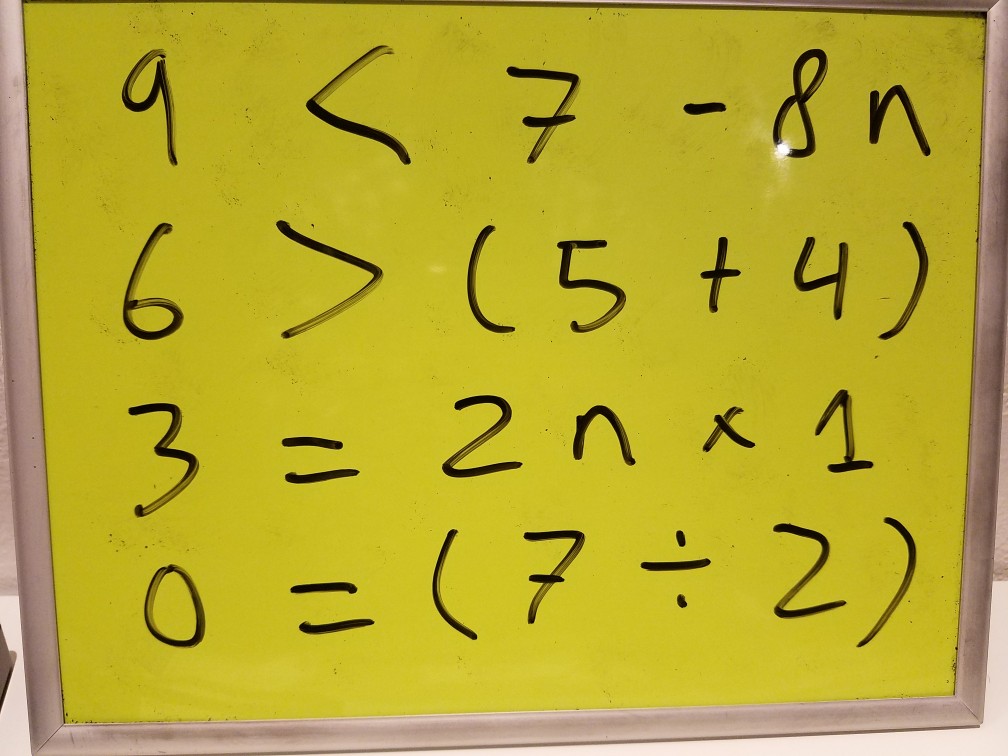 9 < 7 - 8n
6 > (5 + 4)
3 = 2n × 1
0 = (7 ÷ 2)